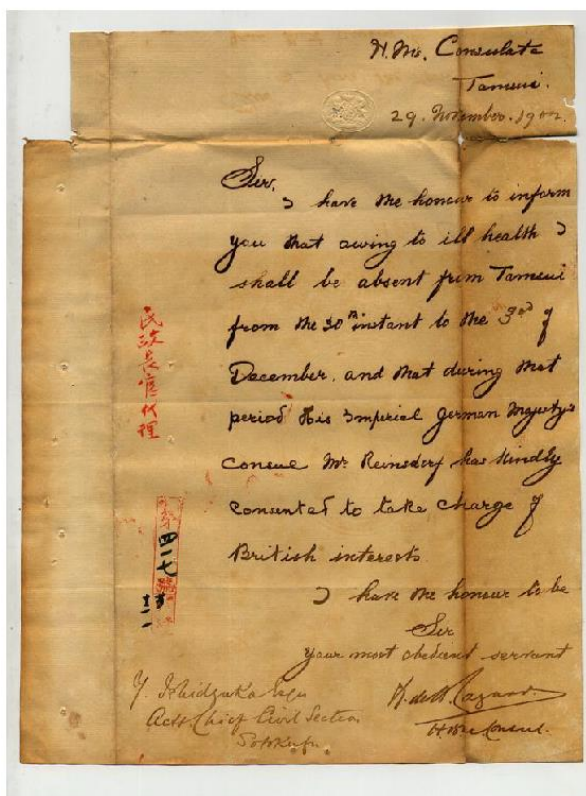 H.M's. Consulate
Tamsui.
29. November. 1902.
Sir,
I have the honour to inform
you that owing to ill health I
shall be absent from Tamsui
from the 30th instant to the 3rd of
December, and that during that
period His Imperial German Majesty's
Consul Mr Reinsdorf has kindly
consented to take charge of
British interests.
I have the honour to be
Sir
your most obedient servant
H.B.M. Consul.
Y. Ishidzuka Esqre
Actg Chief Civil Section
Sotokufu.
民政長官代理